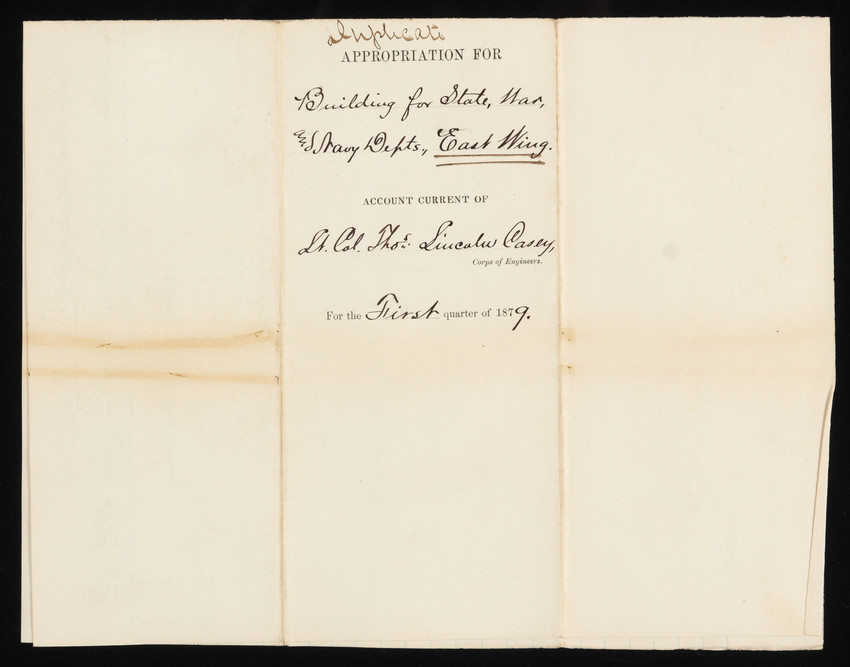 Duplicate
APPROPRIATION FOR
Building for State, War,
and Navy Depts., East Wing.
ACCOUNT CURRENT OF
Lt. Col. Thos. Lincoln Casey,
Corps of Engineers.
For the First quarter of 1879.